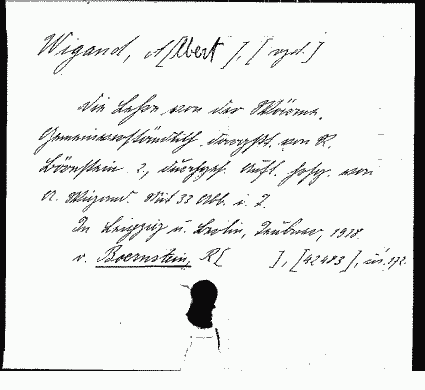 Wigand, A[lbert], [rzd.]
Die Lehre von der Wärme.
Gemeinverständlich dargest. von R.
Börnstein 2, durchges. Aufl. hrsg. von
A. Wigand. Mit 33 Abb. i. T.
In Leipzig u. Berlin, Teubner, 1918.
v. Boernstein, R[ ], [42483],